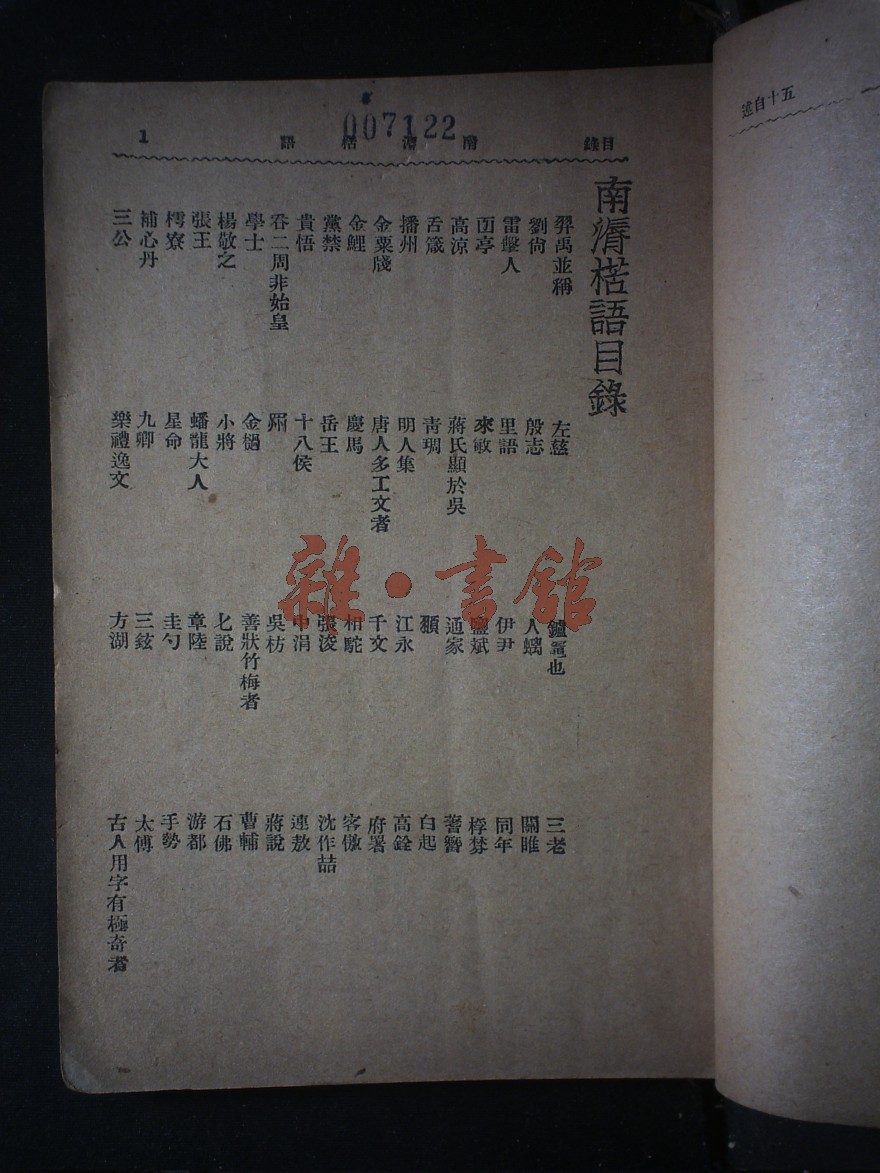 五十自述
目錄
南漘楛語
1
007122
南漘楛語目錄
羿禹並稱
左慈
鑪竈也
三老
劉尙
殷志
人螭
關雎
雷擊人
里語
伊尹
同年
亭
來敏
斌
桴棼
高涼
蔣氏顯於吳
通家
蓍簪
舌箴
靑琱
白起
播州
明人集
江永
高銓
金粟牋
唐人多工文者
千文
府署
金鯉
慶馬
相駝
客傲
黨禁
岳王
張浚
沈作喆
貴悟
十八侯
中涓
連敖
吞二周非始皇
吳枋
蔣說
學士
金檛
善狀竹梅者
曹輔
楊敬之
小將
七說
石佛
張王
蟠龍大人
章陸
游都
樗寮
星命
圭勺
手勢
補心丹
九卿
三鉉
太傅
三公
樂禮逸文
方湖
古人用字有極奇者
雜·書館